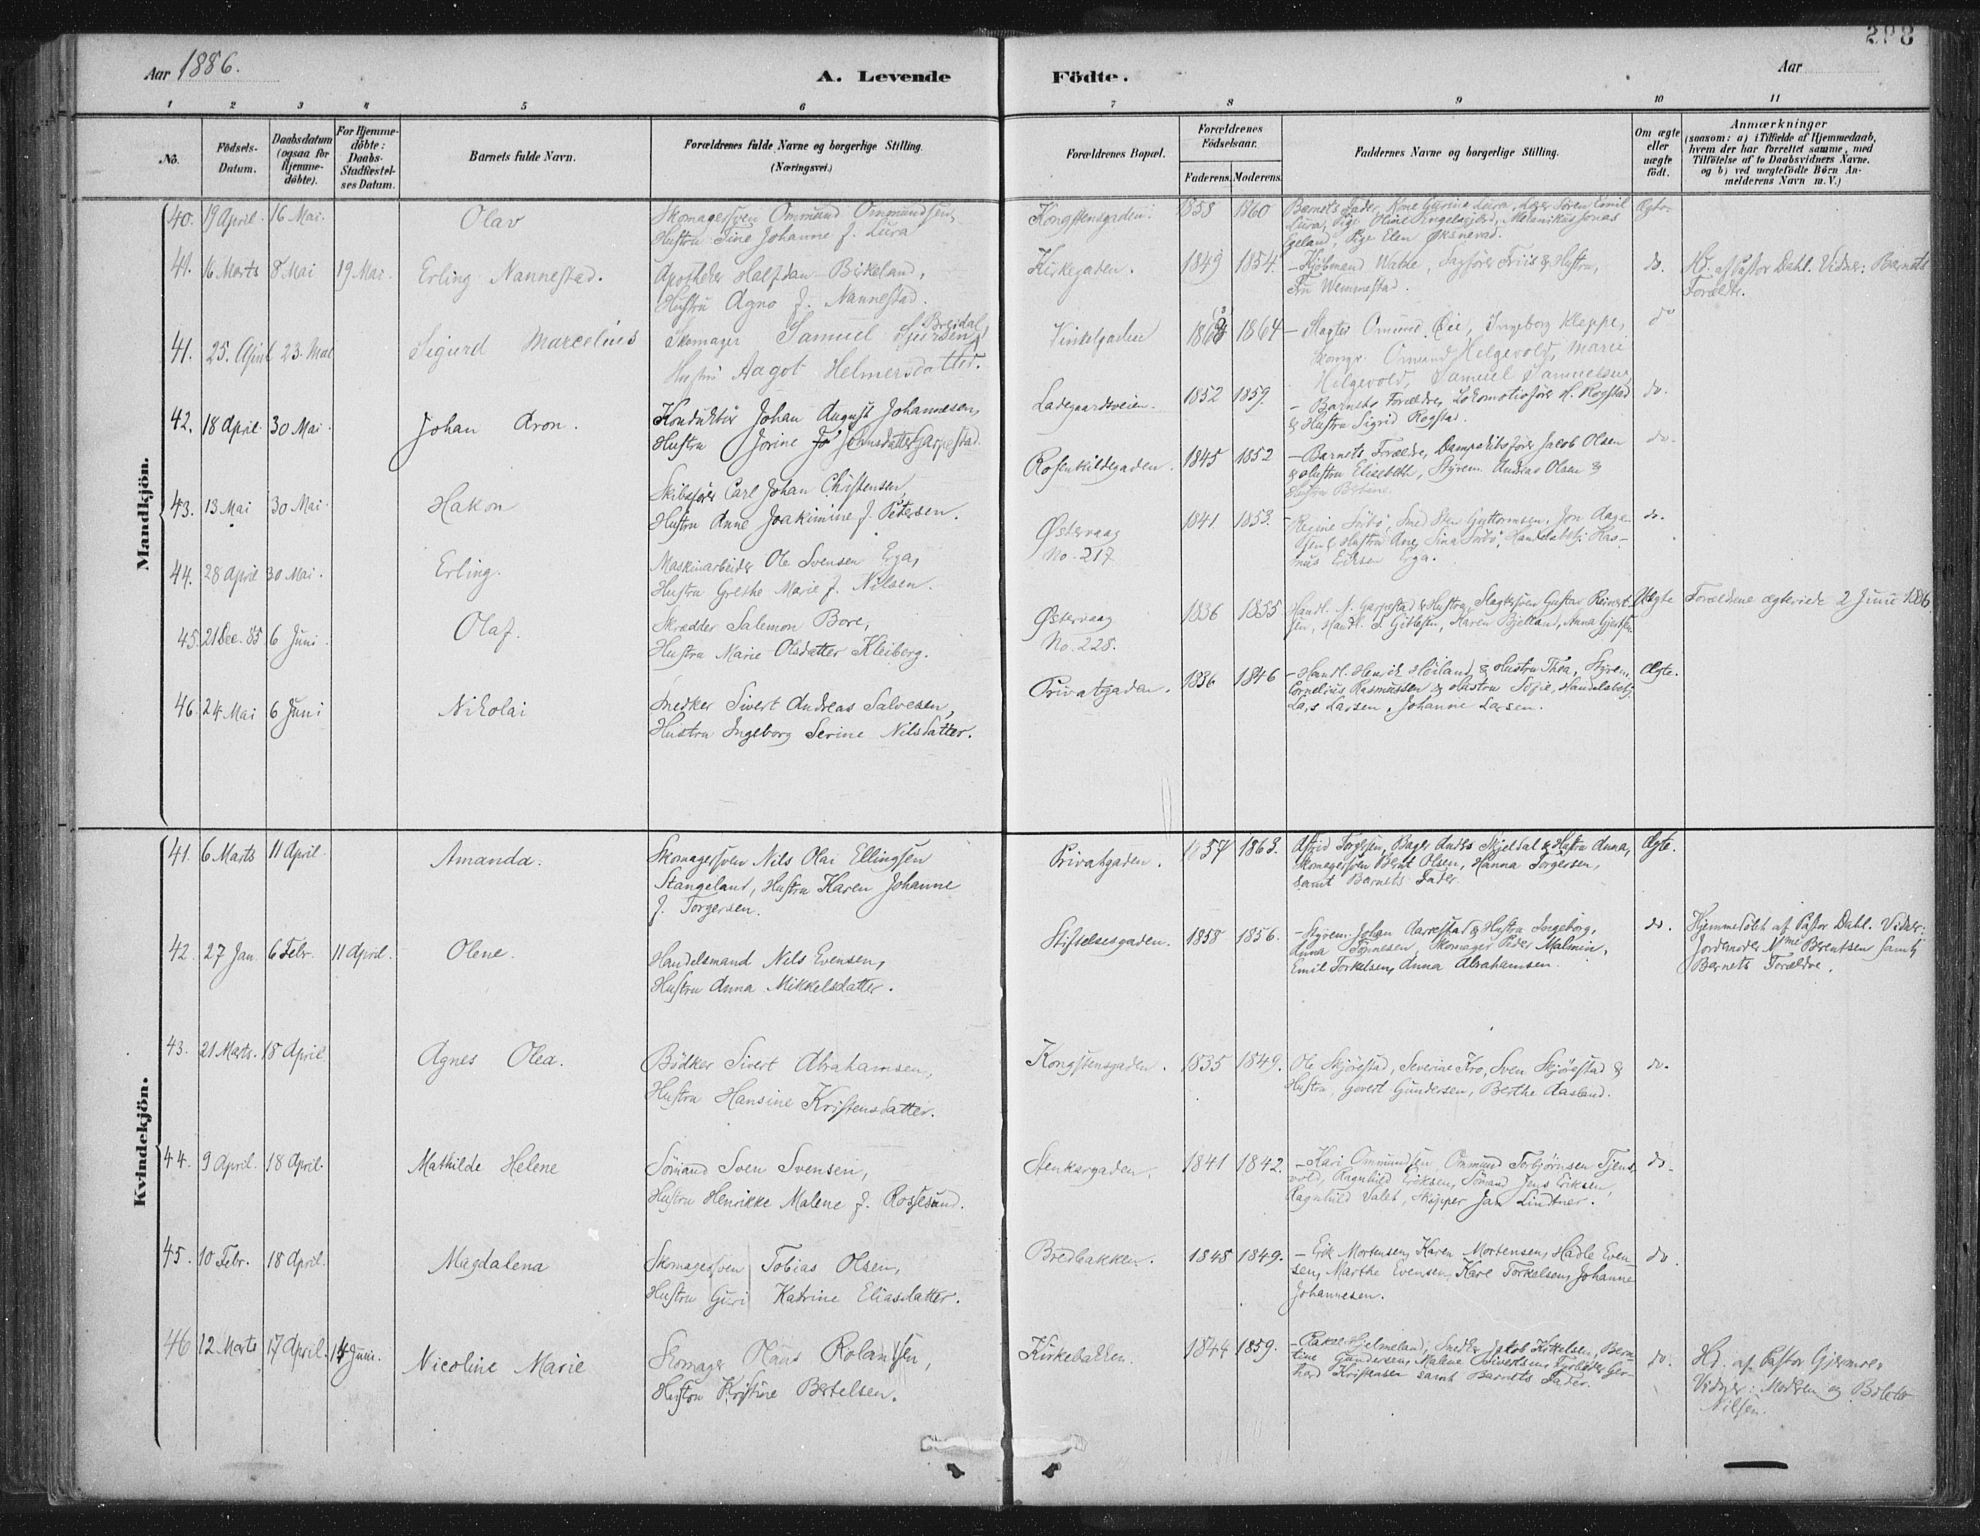 298
Aar 1886.
A. Levende Födte.
Aar
1 2 3 4 5 6 7 8 9 10 11
No.
Födsels-Datum.
Daabsdatum (ogsaa for Hjemme-döbte).
For Hjemme-döbte: Daabs-Stadfæstel-ses Datum.
Barnets fulde Navn.
Forældrenes fulde Navne og borgerlige Stilling. (Næringsvei.)
Forældrenes Bopæl.
Forældrenes Födselsaar.
Faderens. Moderens.
Faddernes Navne og borgerlige Stilling.
Om ægte eller uægte födt.
Anmærkninger
(saasom: a) i Tilfælde af Hjemmedaab,
hvem der har forrettet samme, med
Tilföielse af to Daabsvidners Navne.
og b) ved uægtefödte Börn An-
melderens Navn m. V.)
Mandkjön.
40. 19 April. 16 Mai. Olav
Skomagersven Ommund Ommundsen,
Hustru Tine Johanne f. Lura
Kongstensgaden. 1858 1860
Barnets Fader, Kone Gurine Lura, Sören Emil
Lura, Pige Oline Engelsgjerd, Jonas
Egeland, Pige Elen Øksnevad.
Ægte.
41. 16 Marts 8 Mai 19 Mai. Erling Nannestad.
Apotheker Halfdan Birkeland,
Hustru Agno f. Nannestad.
Kirkegaden. 1849 1854.
– Kjöbmand Watne, Sagförer Friis & Hustru,
Fru Wemmestad.
do.
Hd. af Pastor Dahl. Vidner: Barnets
Forældre.
41. 25. April 23. Mai Sigurd Marcelius
Skomager Samuel Sjursen Breidal,
Hustru Aagot Helmersdatter.
Vinkelgaden 1863 1864
– Slagter Omund Øie, Ingeborg Kleppe,
Skomgr. Omund Helgevold, Marie
Helgevold, Samuel Samuelsen
do
42. 18 April. 30 Mai. Johan Aron.
Konduktör Johan August Johannesen,
Hustru Jorine Johnsdatter Garpestad.
Ladegaardsveien. 1852 1859.
– Barnets Forældre, Lokomotivförer H. Rogstad
& Hustru Sigrid Rogstad.
do.
43. 13 Mai 30 Mai. Hakon
Skibsförer Carl Johan Christensen,
Hustru Anne Joakimine f. Petersen.
Rosenkildegaden. 1845 1852
– Barnets Forældre, Dampskibsförer Jacob Olsen
& Hustru Elisebeth, Styrem. Andreas Olsen &
Hustru
do.
44. 28 April 30 Mai. Erling.
Maskinarbeider Ole Svensen Erga,
Hustru Grethe Marie f. Nilsen.
Østervaag
No. 217 1841 1853.
– Regine Sörbö, Smed Sten Guttormsen, Jon Aage-
sen & Hustru Ane, Sina Sörbö, Handelsbetj. Ras-
mus Eriksen Erga.
do.
45. 21 Dec. 85 6 Juni. Olaf.
Skrædder Salemon Bore,
Hustru Marie Olsdatter Kleiberg.
Østervaag
No. 228. 1836 1855
Handl. N. Garpestad & Hustru, Slagtersven Gustav Reinert-
sen, Handl. S. Gitlesen, Karen Bjelland, Anna
Uægte
Forældrene ægteviede 2 Juni 1886.
46. 24 Mai 6 Juni Nikolai
Snedker Sivert Andreas Salvesen,
Hustru Ingeborg Serine Nilsdatter.
Privatgaden. 1836 1846
– Handl. Henrik Höiland & Hustru Thea, Styrem.
Cornelius Rasmussen & Hustru Sofie, Handelsbetj.
Lars Larsen, Johanne Larsen.
Ægte.
Kvindekjön.
41. 6 Marts 11 April. Amanda.
Skomagersven Nils Olai Ellingsen
Stangeland, Hustru Karen Johanne
f. Torgersen.
Privatgaden. 1857 1863.
Astrid Torgersen, Bager Andrs Skjeldal & Hustru Anna,
Skomagersven Bent Olsen, Hanna Torgersen,
samt Barnets Fader.
Ægte.
42. 27 Jan. 6 Febr. 11 April. Olene.
Handelsmand Nils Evensen,
Hustru Anna Mikkelsdatter.
Stiftelsesgaden. 1858 1856.
– Styrem. Johan Aarrestad & Hustru Ingeborg,
Anna Tönnesen, Skomager Peder Malmin,
Emil Torkelsen, Anna Abrahamsen.
do.
Hjemmedöbt af Pastor Dahl. Vidner:
Jordemoder Mme Berentsen samt
Barnets Forældre.
43. 21 Marts. 18 April. Agnes Olea.
Bödker Sivert Abrahamsen,
Hustru Hansine Kristensdatter.
Kongstensgaden. 1835 1849.
Ole Skjörestad, Severine Kro, Sven Skjörestad &
Hustru, Govert Gundersen, Berthe Aasland.
do.
44. 9 April. 18 April. Mathilde Helene
Sömand Sven Svensen,
Hustru Henrikke Malene f. Rossesund.
Stenkargaden. 1841 1842.
– Kari Ommundsen, Ommund Torbjørnsen Tjens-
vold, Ragnhild Eriksen, Sömand Jens Eriksen,
Ragnhild Salet, Skipper Jan Lindtner.
do.
45. 10 Febr. 18 April. Magdalena
Skomagersven Tobias Olsen,
Hustru Guri Katrine Eliasdatter.
Bredbakken. 1845 1849.
– Erik Mortensen, Karen Mortensen, Hadle Even-
sen, Marthe Evensen, Kare Torkelsen, Johanne
Johannesen.
do.
46 12 Marts 17 April. 14 Juni. Nicoline Marie
Skomager Hans Rolamsen,
Hustru Kristine Bertelsen.
Kirkebakken. 1844 1859.
– Rakel Hjelmeland, Snedker Jakob Kittelsen, Bern-
tine Gundersen, Malene Sivertsen, Ger-
hard Kristensen samt Barnets Fader.
do.
Hd. af Pastor Gjermoe.
Vidner: Modren og Bolette
Nilsen.